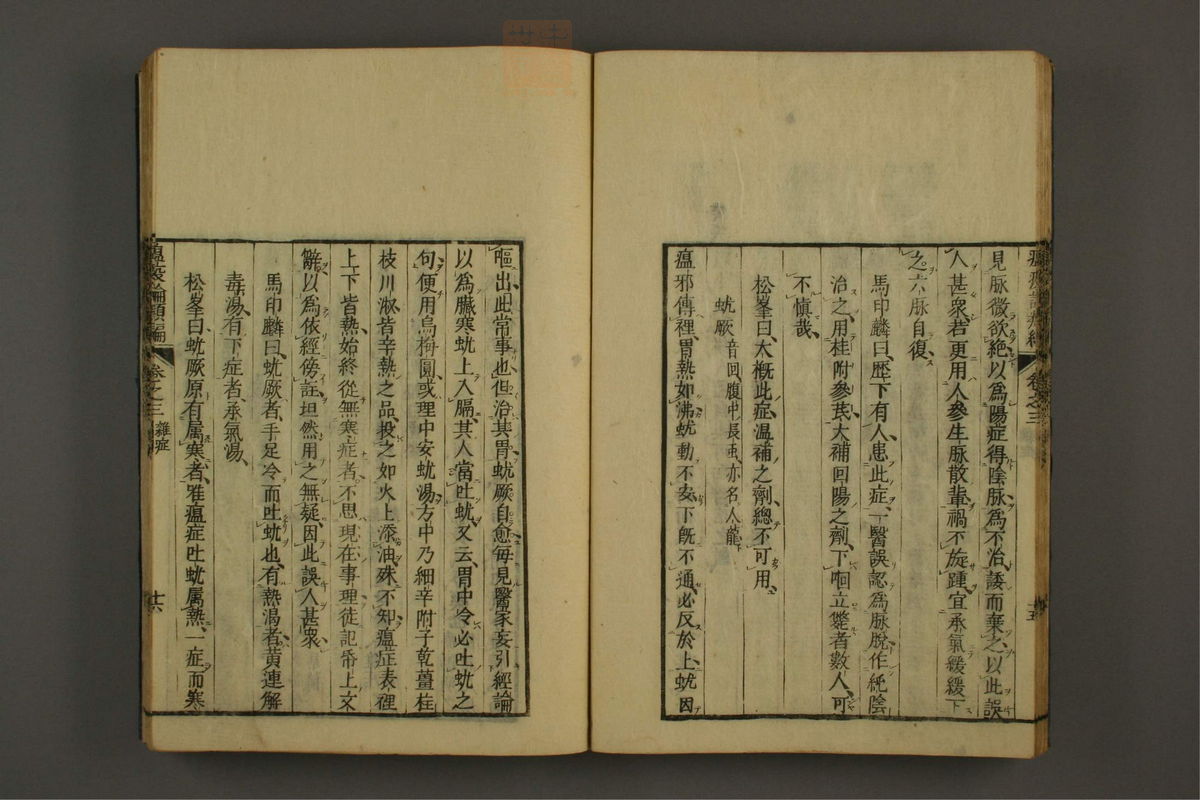 見脉微欲絶以爲陽症得陰脉爲不治諉而棄之以此誤
人甚衆若更用人參生脉散輩禍不旋踵宜承氣緩緩下
之六脉自復
馬印麟曰歴下有人患此症一醫誤認爲脉脫作純陰
治之用桂附參茋大補回陽之劑下咽立斃者數人可
不愼哉
松峯曰大概此症温補之劑總不可用
蚘厥 音回腹中長虫亦名人龍
瘟邪傳裡胃熱如沸蚘動不安下旣不通必反於上蚘因
卷之三
十五
嘔出此常事也但治其胃蚘厥自愈毎見醫家妄引經論
以爲臟寒蚘上入膈其人當吐蚘又云胃中冷必吐蚘之
句便用烏梅圓或理中安蚘湯方中乃細辛附子乾薑桂
枝川淑皆辛熱之品投之如火上添油殊不知瘟症表裡
上下皆熱始終從無寒症者不思現在事理徒記帋上文
辭以爲依經傍註坦然用之無疑因此誤人甚衆
馬印麟曰蚘厥者手足冷而吐蚘也有熱渴者黄連解
毒湯有下症者承氣湯
松峯曰蚘厥原有属寒者雅瘟症吐蚘属熱一症而寒
瘟疫論類編
卷之三 雜症
十六